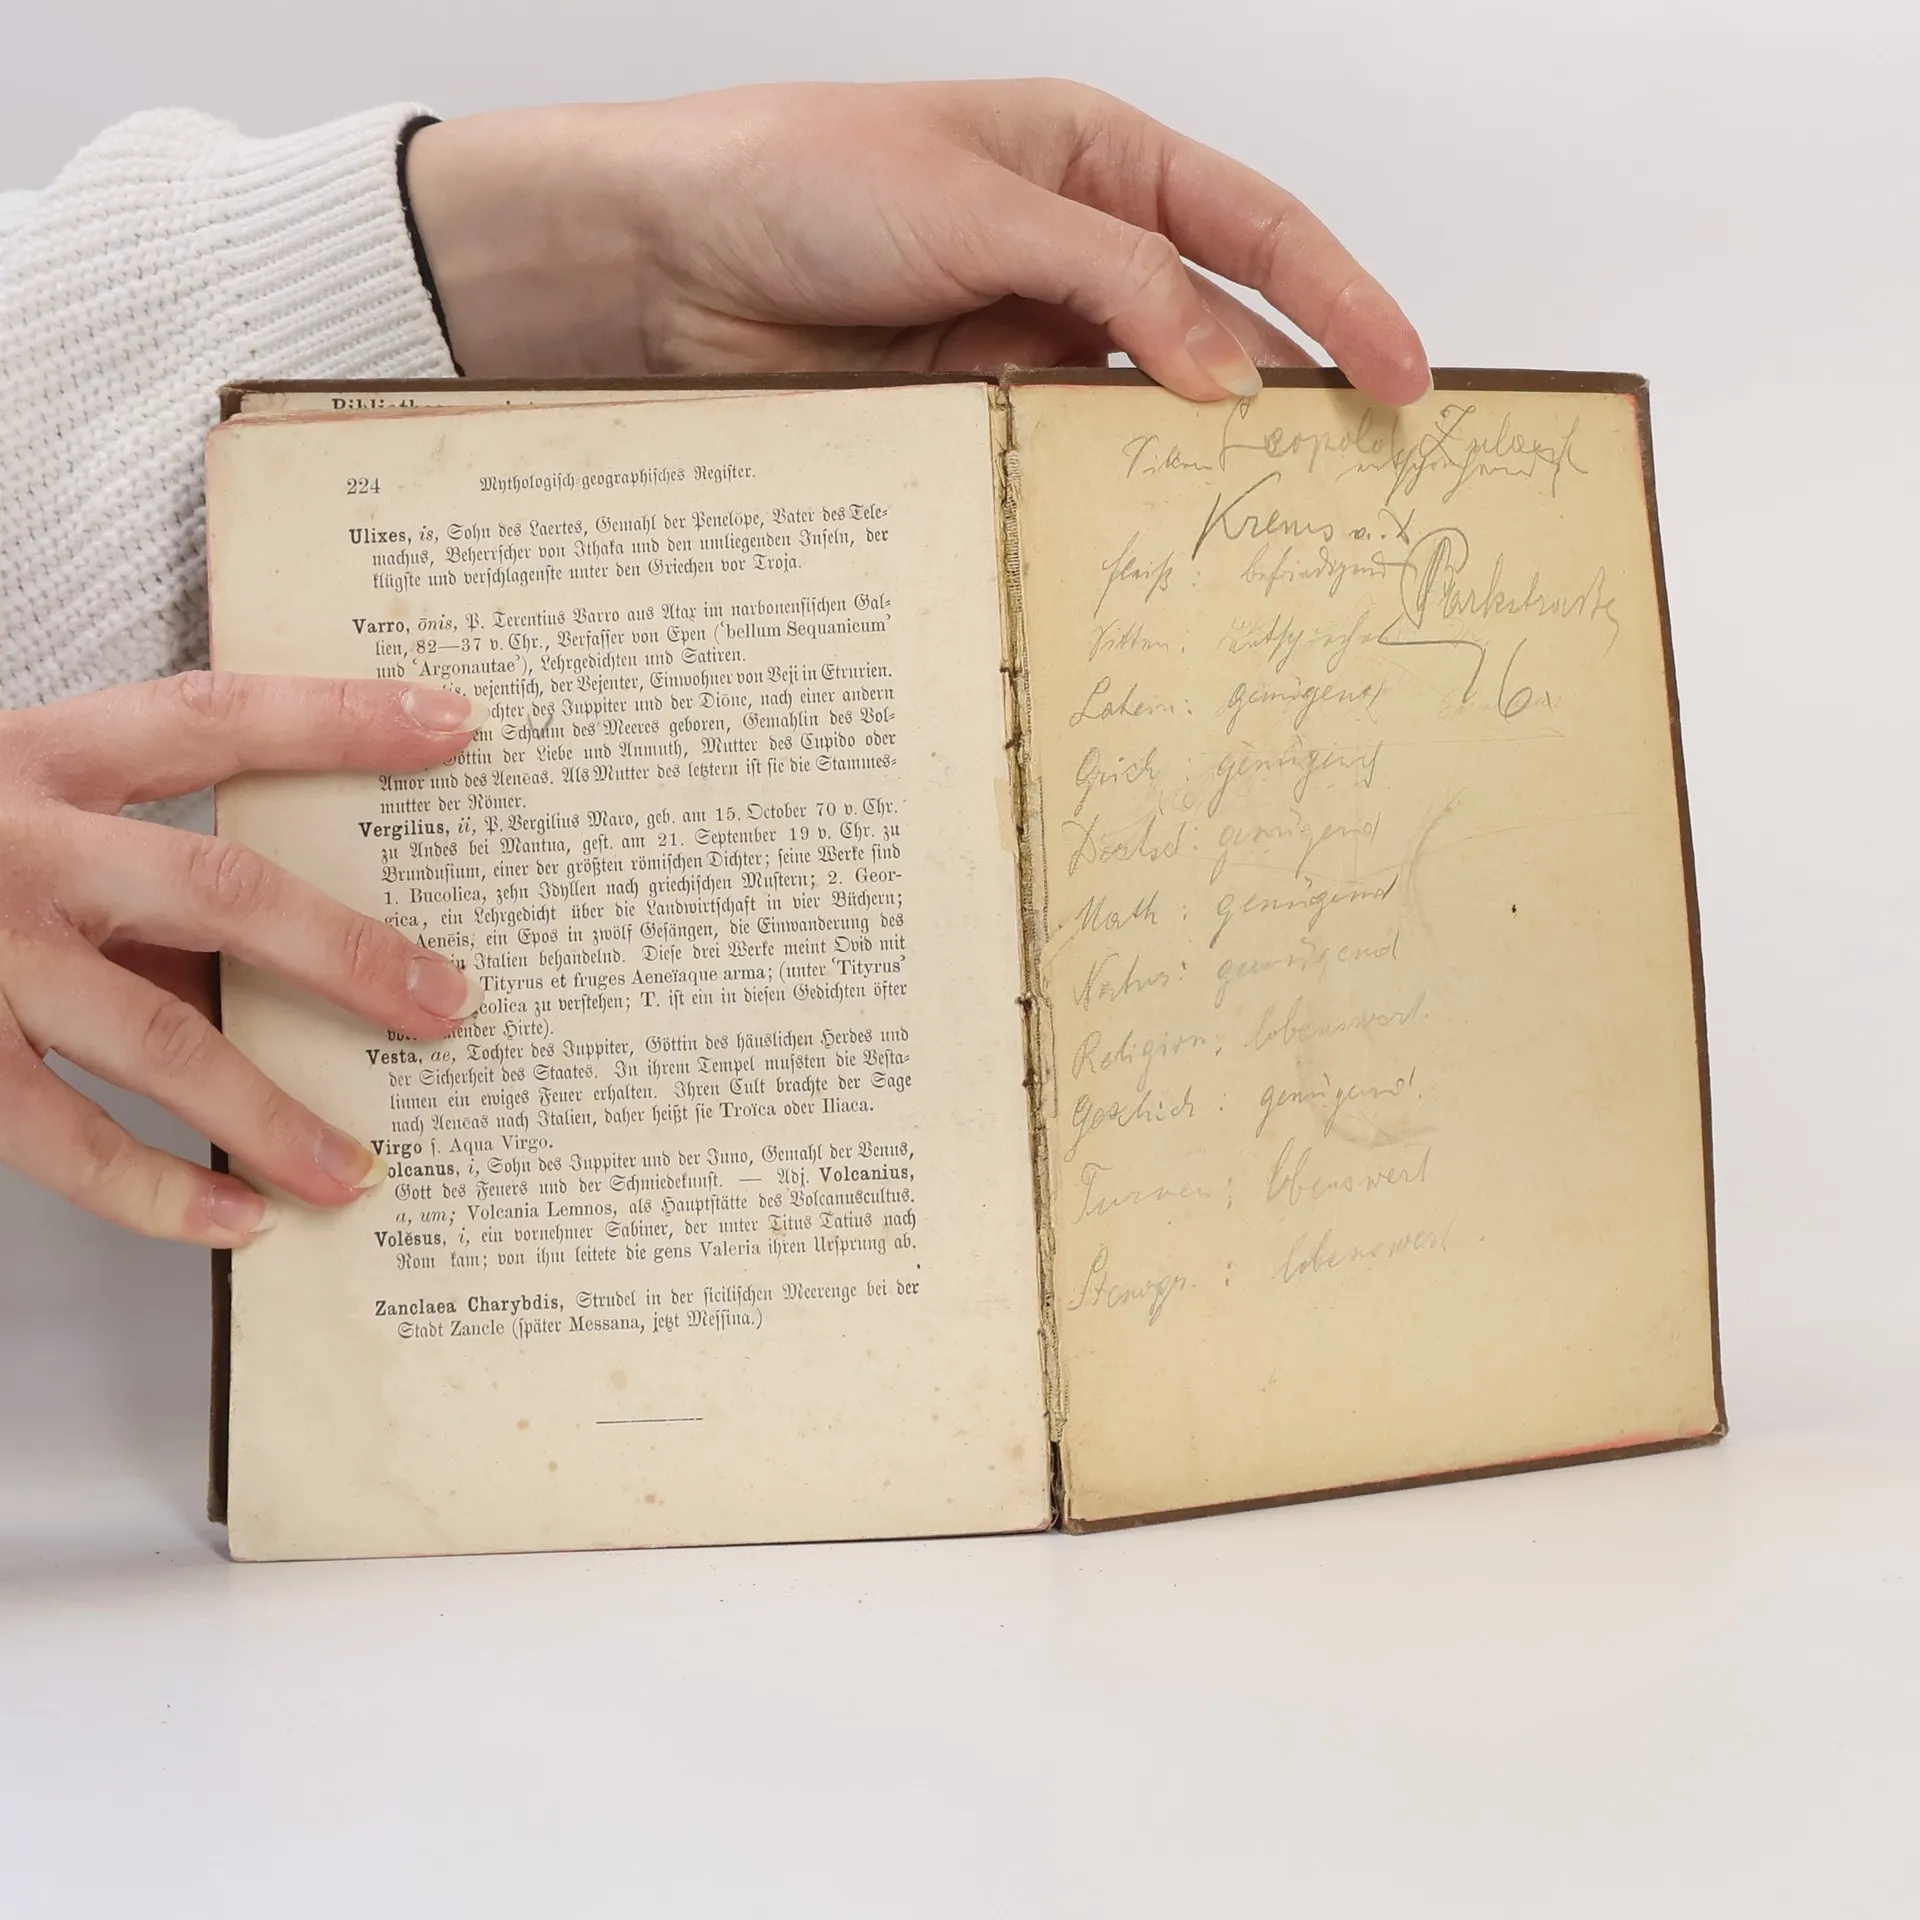 224 Mythologisch-geographisches Register.
Ulixes, is, Sohn des Laertes, Gemahl der Penelope, Vater des Tele-
machus, Beherrscher von Ithaka und den umliegenden Inseln, der
klügste und verschlagenste unter den Griechen vor Troja.
Varro, ōnis, P. Terentius Varro aus Atax im narbonensischen Gal-
lien, 82—37 v. Chr., Verfasser von Epen (‘bellum Sequanicum’
und ‘Argonautae’), Lehrgedichten und Satiren.
vejentisch, der Vejenter, Einwohner von Veji in Etrurien.
des Juppiter und der Diōne, nach einer andern
Schaum des Meeres geboren, Gemahlin des Vol-
der Liebe und Anmuth, Mutter des Cupido oder
Amor und des Aenēas. Als Mutter des letztern ist sie die Stammes-
mutter der Römer.
Vergilius, ii, P. Vergilius Maro, geb. am 15. October 70 v. Chr.
zu Andes bei Mantua, gest. am 21. September 19 v. Chr. zu
Brundusium, einer der größten römischen Dichter; seine Werke sind
1. Bucolica, zehn Idyllen nach griechischen Mustern; 2. Geor-
gica, ein Lehrgedicht über die Landwirtschaft in vier Büchern;
Aenēis, ein Epos in zwölf Gesängen, die Einwanderung des
in Italien behandelnd. Diese drei Werke meint Ovid mit
Tityrus et fruges Aeneïaque arma; (unter ‘Tityrus’
zu verstehen; T. ist ein in diesen Gedichten öfter
Hirte).
Vesta, ae, Tochter des Juppiter, Göttin des häuslichen Herdes und
der Sicherheit des Staates. In ihrem Tempel mussten die Vesta-
linnen ein ewiges Feuer erhalten. Ihren Cult brachte der Sage
nach Aenēas nach Italien, daher heißt sie Troïca oder Iliaca.
Virgo s. Aqua Virgo.
olcanus, i, Sohn des Juppiter und der Juno, Gemahl der Venus,
Gott des Feuers und der Schmiedekunst. — Adj. Volcanius,
a, um; Volcania Lemnos, als Hauptstätte des Volcanuscultus.
Volĕsus, i, ein vornehmer Sabiner, der unter Titus Tatius nach
Rom kam; von ihm leitete die gens Valeria ihren Ursprung ab.
Zanclaea Charybdis, Strudel in der sicilischen Meerenge bei der
Stadt Zancle (später Messana, jetzt Messina.)
Sitten Leopold
entsprechend
Krems a. D.
Fleiß : befriedigend Parkstraße
Sitten : entsprechend 6
Latein : genügend
Griech : genügend
Deutsch : genügend
Math : genügend
Natur : genügend
Religion : lobenswert.
Geschich : genügend.
Turnen : lobenswert
Stenogr. : lobenswert.